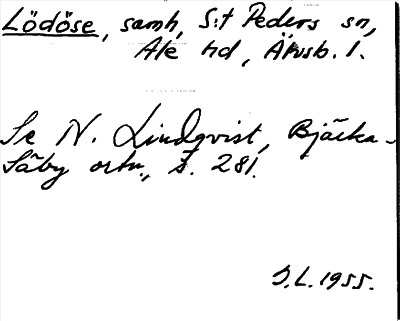 Lödöse, samh, S:t Peders sn,
Ale hd, Älvsb. l.
Se N. Lindqvist, Bjärka-
Säby ortn., s. 281.
S.L. 1955.